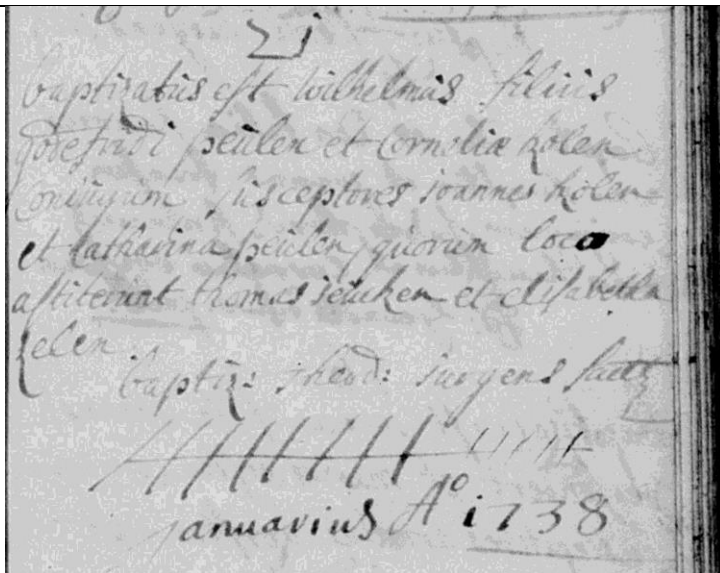 21
baptizatus est wilhelmus filius
godefridi peulen et corneliæ kolen
coniugum susceptores ioannes kolen
et catharina peulen, quorum loco
astiterunt thomas et elisabetha
baptiz: theod: surgens
januarius A° 1738